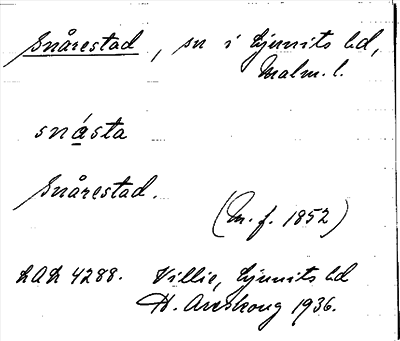 Snårestad, sn i Ljunits hd,
Malm. l.
snásta
Snårestad.
(M. f. 1852)
LAL 4288. Villie, Ljunits hd
H. Areskoug 1936.